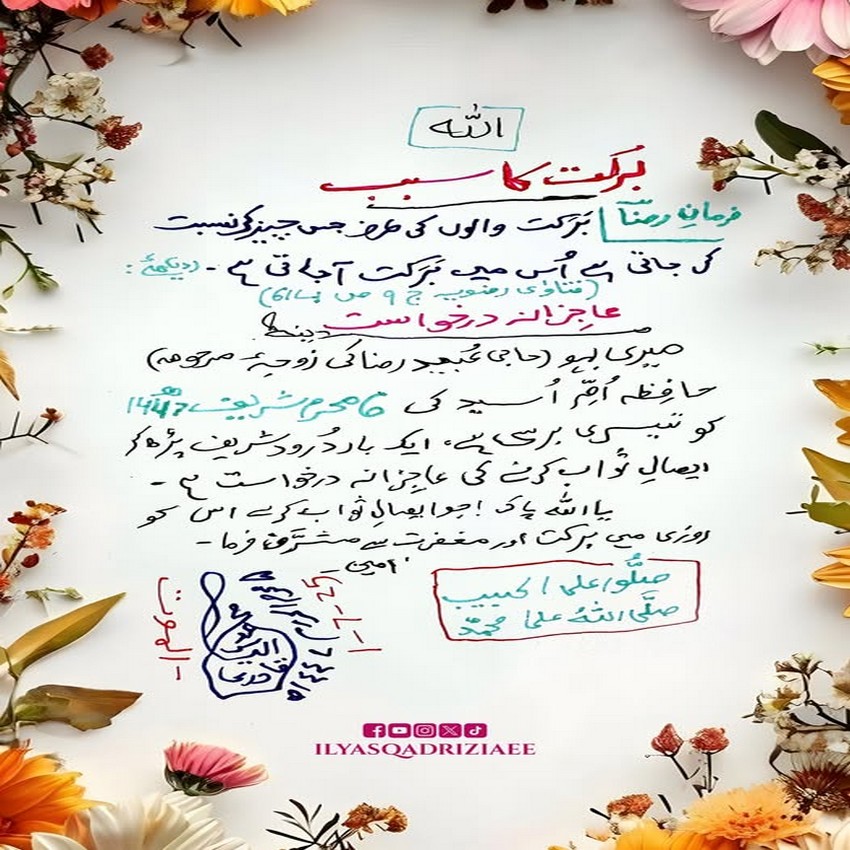 اللہ
بَرَکت کا سبب
فرمانِ رضا بَرَکت والوں کی طرف جس چیز کی نسبت
کی جاتی ہے اُس میں بَرَکت آجاتی ہے ۔ (دیکھئے:
(فتاوٰی رضویہ ج ۹ ص ۶۱۴)
عاجزانہ درخواست
میری بہو (حاجی عُبید رضا کی زوجۂ مرحومہ)
حافِظہ اُمِّ اُسید کی ۶ محرم شریف 1447
کو تیسری برسی ہے، ایک بار دُرود شریف پڑھ کر
ایصالِ ثواب کرنے کی عاجزانہ درخواست ہے ۔
یا اللہ پاک! جو ایصالِ ثواب کرے اس کو
روزی میں برکت اور مغفرت سے مشرَّف فرما ۔
اٰمین ۔
صلُّوا علی الحبیب
صلَّی اللہُ علٰی محمَّد
الموت
محمد الیاس قادری
ILYASQADRIZIAEE